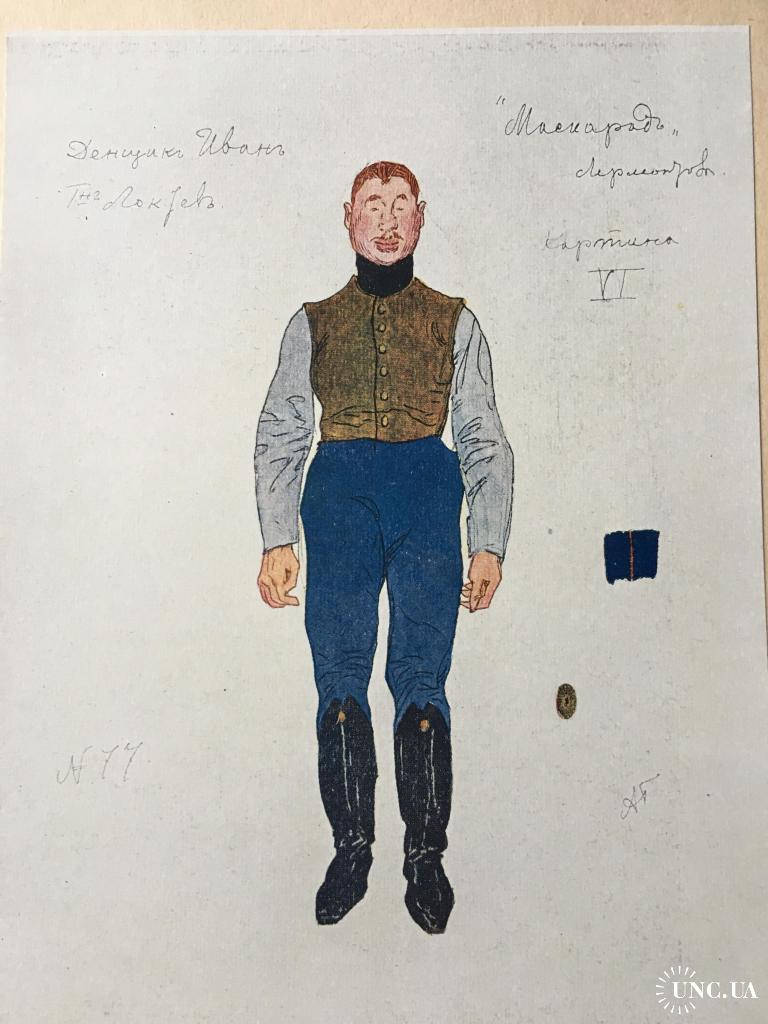 Денщикъ Иванъ
Г-нъ Локтевъ.
"Маскарадъ„
Лермонтова.
Картина
VI
N 77.
АГ
UNC.UA